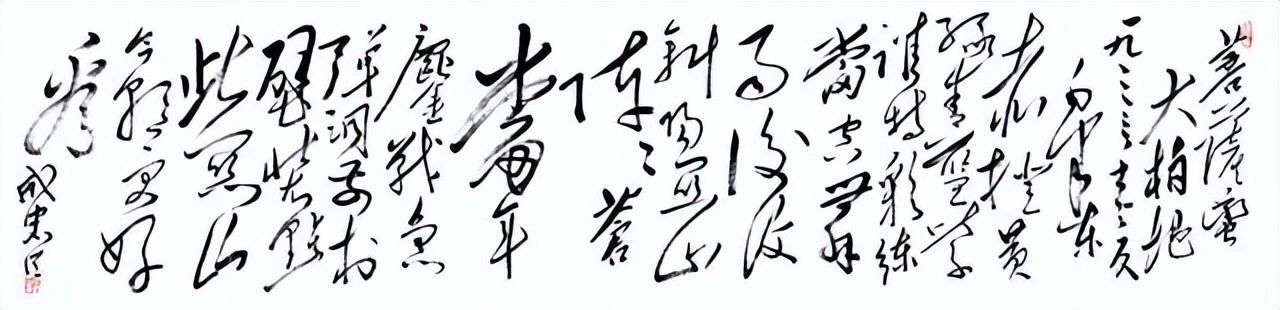 菩薩蛮
大柏地
一九三三年夏
毛泽东
赤橙黄
绿青蓝紫
谁持彩练
當空舞
雨後復
斜阳关山
阵阵蒼
當年
鏖战急
弹洞前村
壁装点
此关山
今朝更好
看
成忠